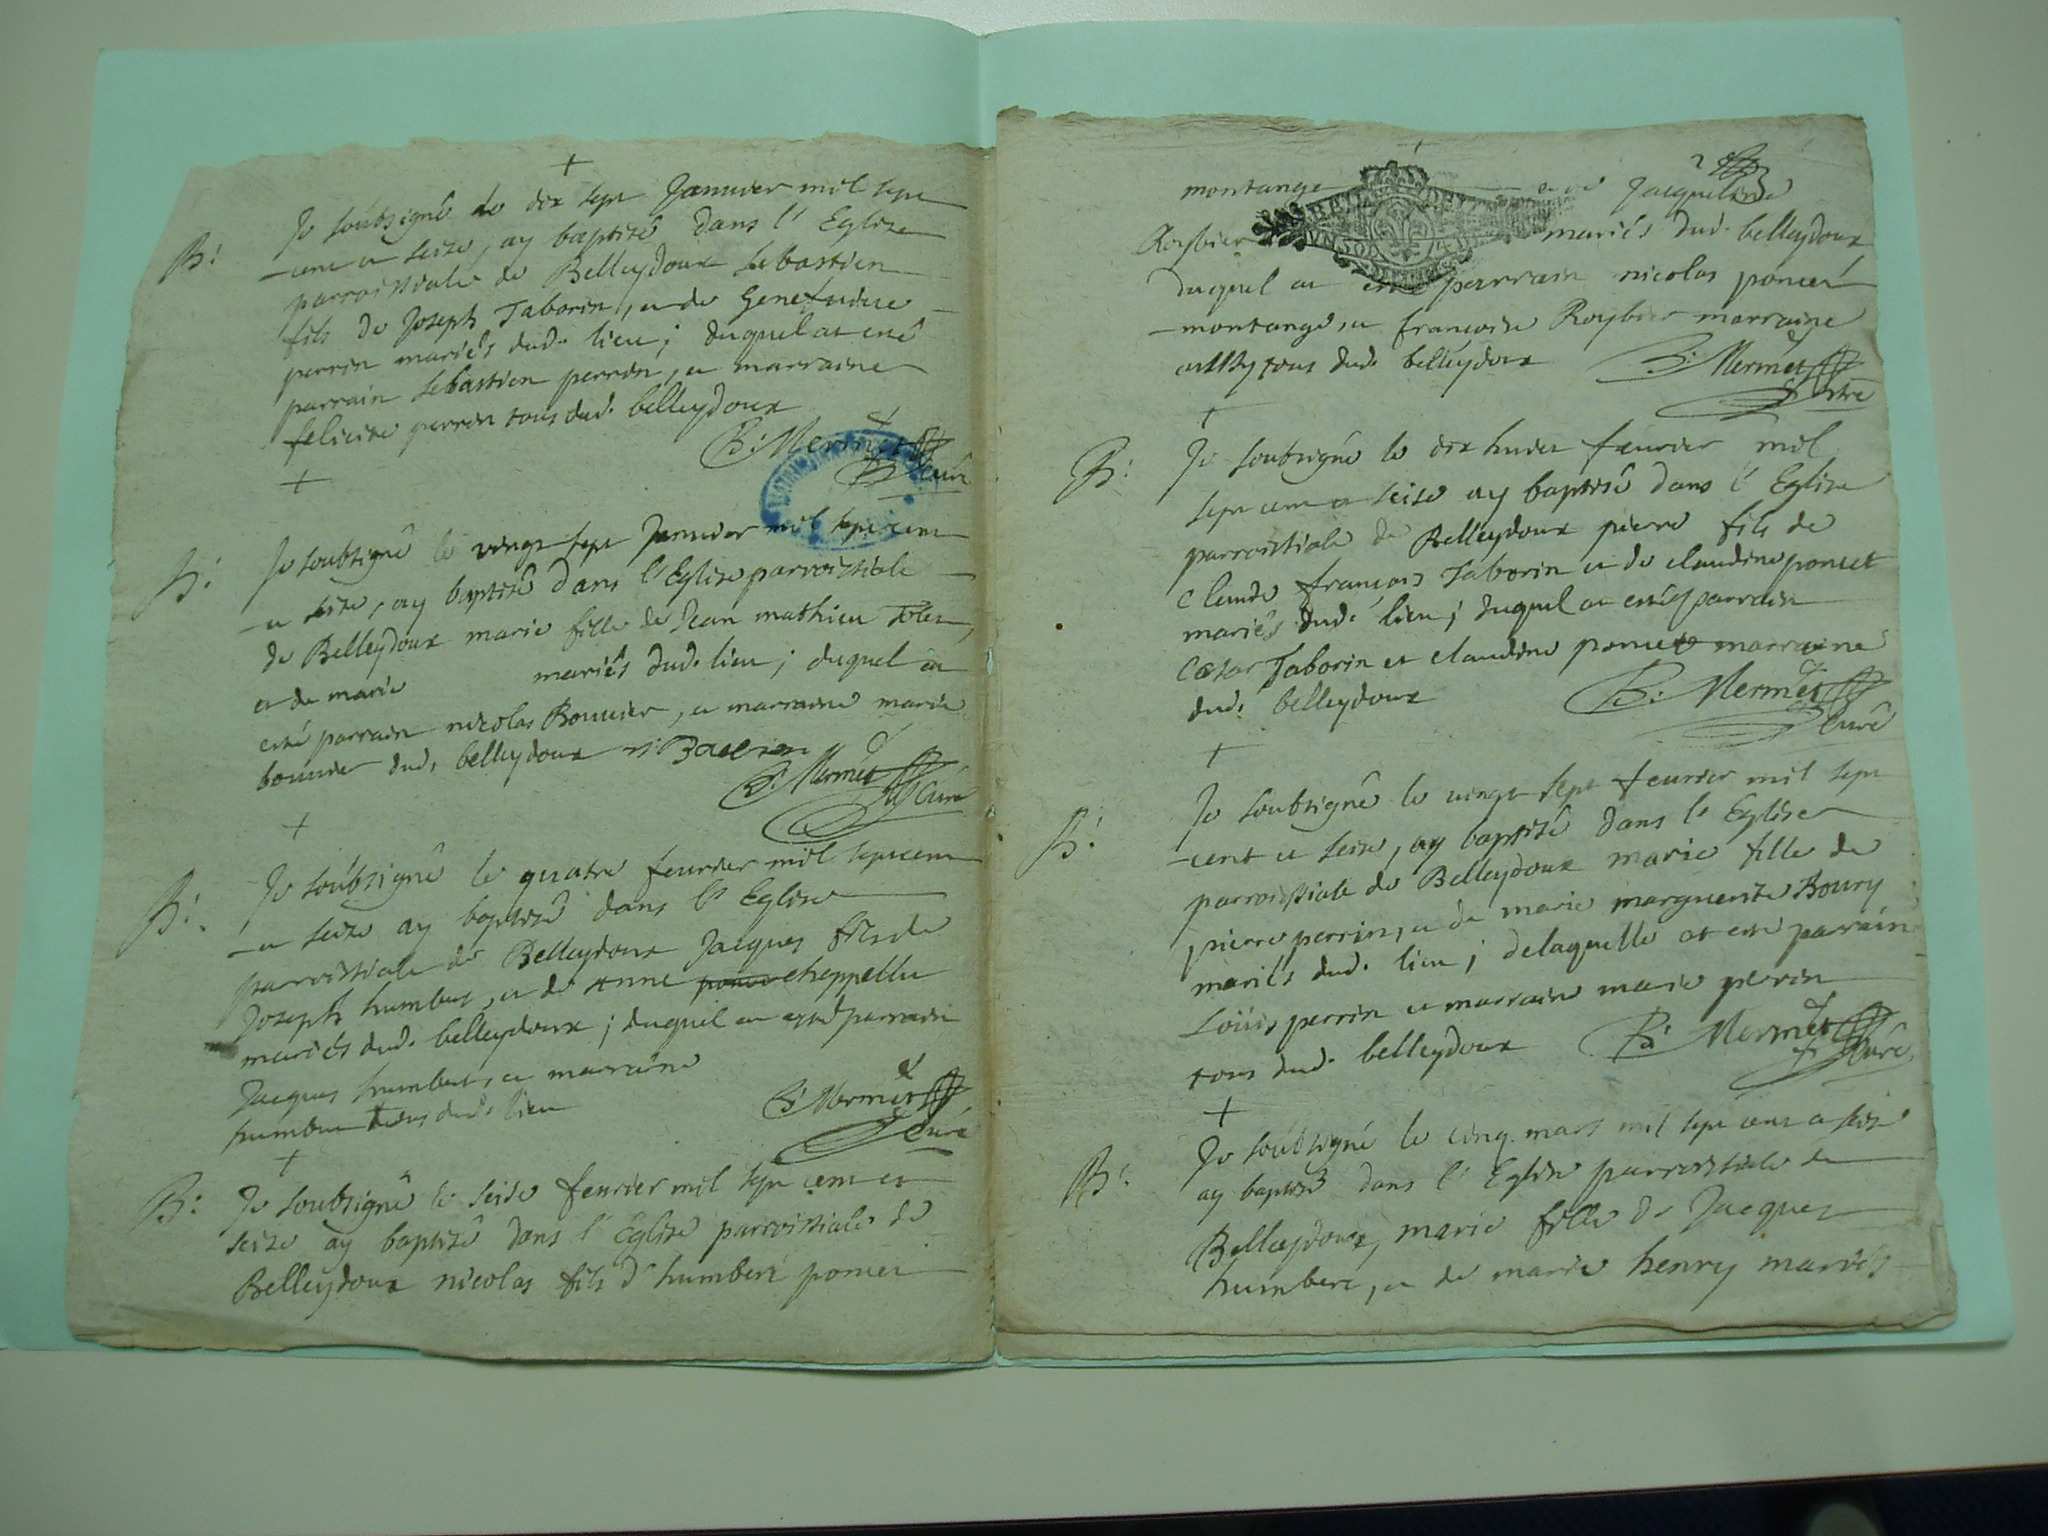 B: Je soubsigné le dix sept Janvier mil sept
cent et seize, ay baptisé dans l'Eglise
parroissiale de Belleydoux sebastien
fils de Joseph Taborin, et de Genefvieve
perrin mariés dud. lieu; duquel at esté
parrain sebastien perrin, et marraine
felicite perrin tous dud. belleydoux
B: Mermet
Curé
B: Je soubsigné le vingt sept Janvier mil sept cent
et seize, ay baptisé dans l'Eglise parroissiale
de Belleydoux marie fille de Jean mathieu
et de marie mariés dud. lieu; duquel at
esté parrain nicolas Bouvier, et marraine marie
bouvier dud. belleydoux
B: Mermet
Curé
B: Je soubsigné le quatre fevrier mil sept cent
et seize ay baptisé dans l'Eglise
parroissiale de Belleydoux Jacques fils de
Joseph humbert, et de Anne chappellu
mariés dud. belleydoux; duquel at esté parrain
Jacques humbert, et marraine
humbert tous dud. lieu
B: Mermet
Curé
B: Je soubsigné le seise fevrier mil sept cent et
seize ay baptisé dans l'Eglise parroissiale de
Belleydoux nicolas fils d'humbert poncet
2
montange et de Jacqueline
Roybier mariés dud. belleydoux
duquel at esté parrain nicolas poncet
montange, et francoise Roybier marraine
tous dud. belleydoux B: Mermet
B: Je soubsigné le dix huict fevrier mil
sept cent et seise ay baptisé dans l'Eglise
parroissiale de Belleydoux pierre fils de
Claude françois Taborin et de claudine poncet
mariés dud. lieu; duquel at esté parrain
Cæsar Taborin et claudine poncet marraine
dud. belleydoux B: Mermet
Curé
B: Je soubsigné le vingt sept fevrier mil sept
cent et seize, ay baptisé dans l'Eglise
parroissiale de Belleydoux marie fille de
pierre perrin, et de marie marguerite Boury
mariés dud. lieu; delaquelle at esté parrain
Loüis perrin et marraine marie perrin
tous dud. belleydoux B: Mermet
Curé
B: Je soubsigné le cinq mars mil sept cent et seise
ay baptisé dans l'Eglise parroissiale de
Belleydoux, marie fille de Jacques
humbert, et de marie henry mariés